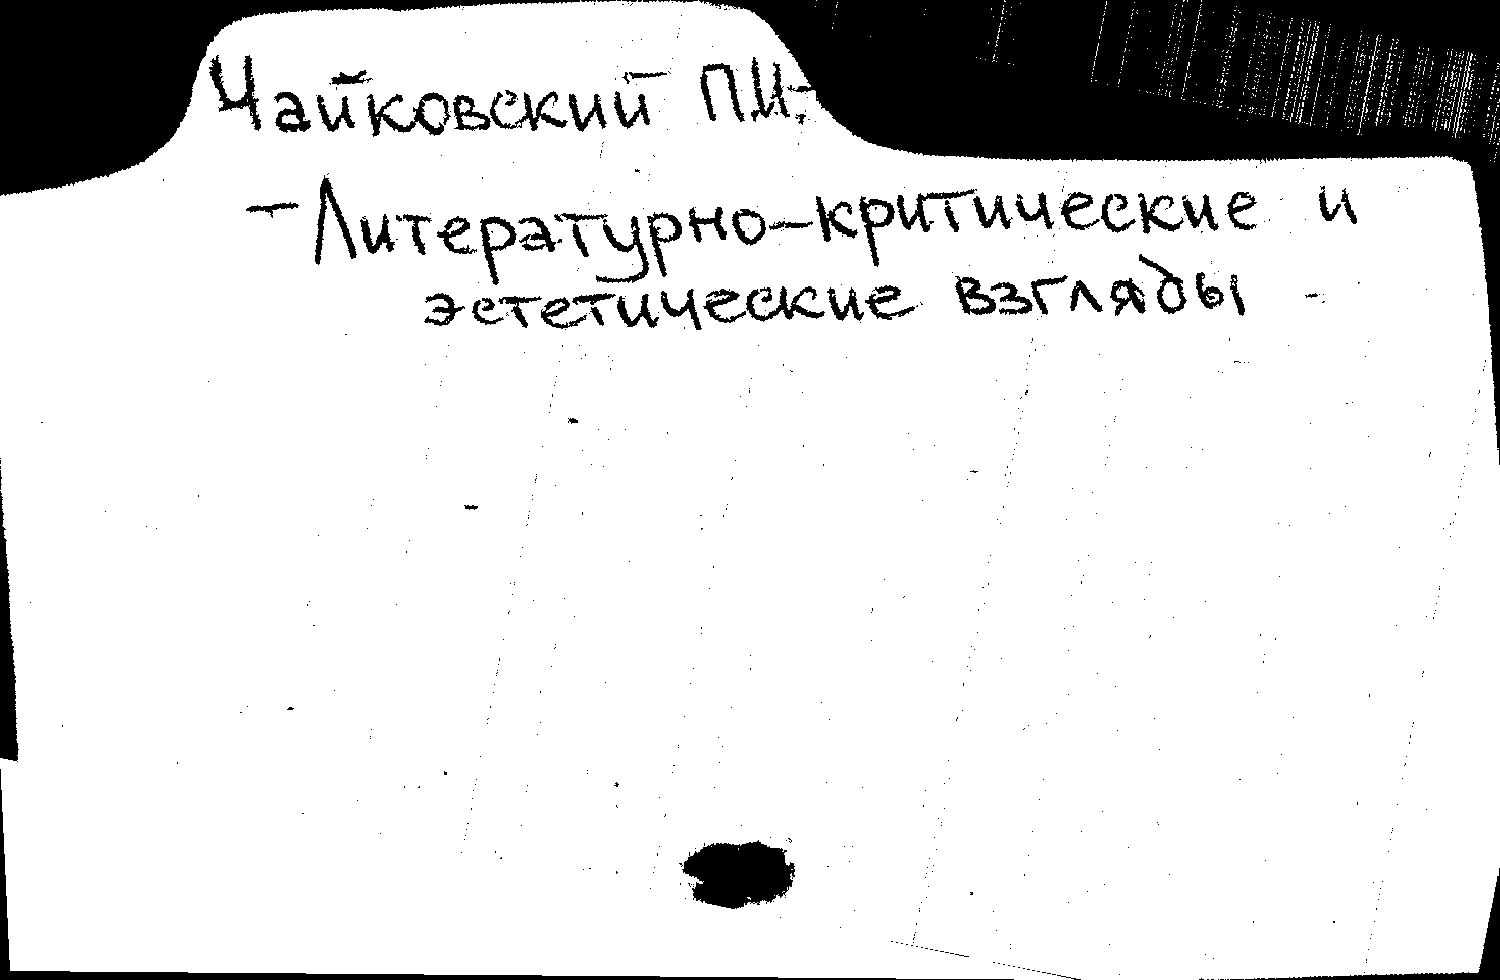 Чайковский П.И.
- Литературно-критические и
эстетические взгляды